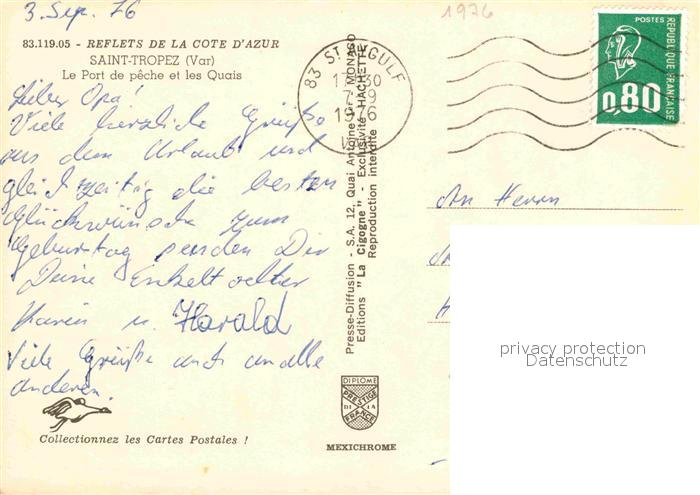 3. Sep. 76
1976
83.119.05 - REFLETS DE LA COTE D'AZUR
SAINT-TROPEZ (Var)
Le Port de pêche et les Quais
Lieber Opa!
Viele herzliche Grüße
aus dem Urlaub und
gleichzeitig die besten
Glückwünsche zum
Geburtstag senden Dir
Deine Enkeltochter
Karin u. Harald
Viele Grüße auch an alle
anderen.
Collectionnez les Cartes Postales !
Presse-Diffusion - S.A. 12, Quai Antoine 1er - MONACO
Editions "La Cigogne" - Exclusivité HACHETTE
Reproduction interdite
DIPLOME
PRESTIGE
DE LA
FRANCE
MEXICHROME
83 ST
GULF
POSTES
REPUBLIQUE FRANÇAISE
0,80
An Herrn
privacy protection
Datenschutz